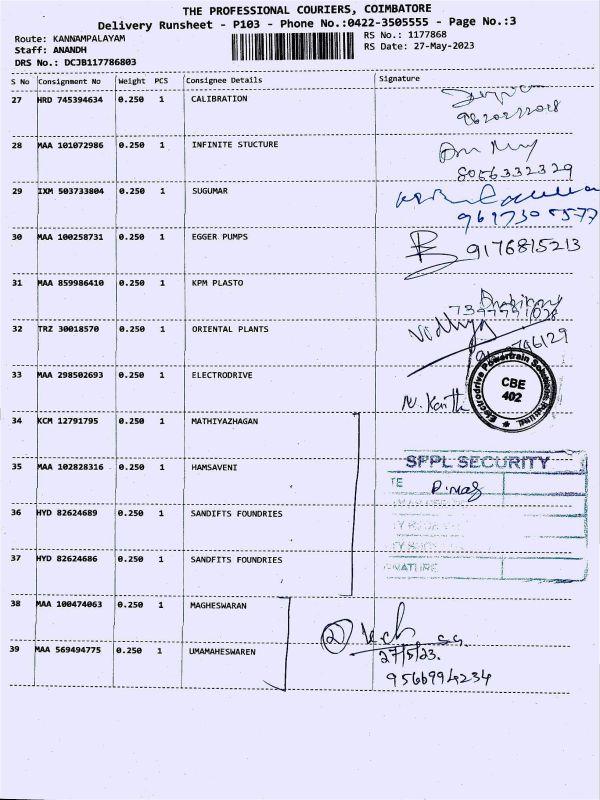 THE PROFESSIONAL COURIERS, COIMBATORE
Delivery Runsheet - P103 - Phone No.:0422-3505555 - Page No.:3
Route: KANNAMPALAYAM
Staff: ANANDH
DRS No.: DCJB117786803
RS No.: 1177868
RS Date: 27-May-2023
S No Consignment No Weight PCS Consignee Details Signature
27 HRD 745394634 0.250 1 CALIBRATION
28 MAA 101072986 0.250 1 INFINITE STUCTURE
8056332329
29 IXM 503733804 0.250 1 SUGUMAR
9617305577
30 MAA 100258731 0.250 1 EGGER PUMPS
9176815213
31 MAA 859986410 0.250 1 KPM PLASTO
32 TRZ 30018570 0.250 1 ORIENTAL PLANTS
Vidhya
33 MAA 298502693 0.250 1 ELECTRODRIVE
N. Karthi
Electrodrive Powertrain Solutions
CBE
402
34 KCM 12791795 0.250 1 MATHIYAZHAGAN
35 MAA 102828316 0.250 1 HAMSAVENI
SFPL SECURITY
36 HYD 82624689 0.250 1 SANDIFTS FOUNDRIES
37 HYD 82624686 0.250 1 SANDFITS FOUNDRIES
38 MAA 100474063 0.250 1 MAGHESWARAN
39 MAA 569494775 0.250 1 UMAMAHESWAREN
27/5/23.
9566994234